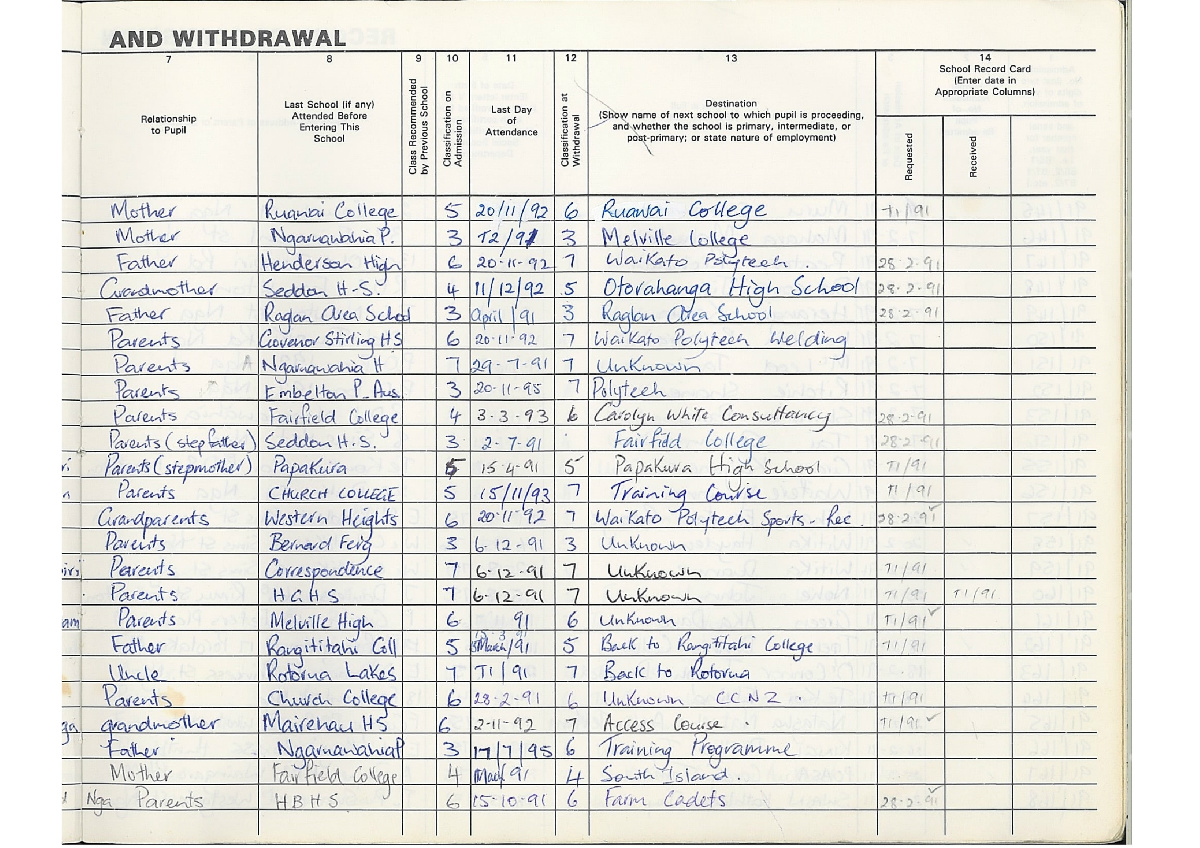 AND WITHDRAWAL
7 8 9 10 11 12 13 14
Relationship to Pupil
Last School (if any) Attended Before Entering This School
Class Recommended by Previous School
Classification on Admission
Last Day of Attendance
Classification at Withdrawal
Destination (Show name of next school to which pupil is proceeding, and whether the school is primary, intermediate, or post-primary; or state nature of employment)
School Record Card (Enter date in Appropriate Columns)
Requested
Received
Mother Ruawai College 5 20/11/92 6 Ruawai College T1/91
Mother Ngaruawahia P. 3 T2/91 3 Melville College
Father Henderson High 6 20-11-92 7 Waikato Polytech. 28-2-91
Grandmother Seddon H.S. 4 11/12/92 5 Otorahanga High School 28-2-91
Father Raglan Area School 3 April/91 3 Raglan Area School 28-2-91
Parents Govenor Stirling HS 6 20-11-92 7 Waikato Polytech Welding
Parents A Ngaruawahia H 7 29-7-91 7 Unknown
Parents Embelton P. Aus. 3 20-11-95 7 Polytech
Parents Fairfield College 4 3-3-93 6 Carolyn White Consultancy 28-2-91
Parents (step father) Seddon H.S. 3 2-7-91 Fairfield College 28-2-91
Parents (stepmother) Papakura 5 15-4-91 5 Papakura High School T1/91
Parents CHURCH COLLEGE 5 15/11/93 7 Training Course T1/91
Grandparents Western Heights 6 20-11-92 7 Waikato Polytech Sports-Rec. 28-2-91
Parents Bernard Ferg 3 6-12-91 3 Unknown
Parents Correspondence 7 6-12-91 7 Unknown T1/91
Parents H G H S 7 6-12-91 7 Unknown T1/91 T1/91
Parents Melville High 6 91 6 Unknown T1/91
Father Rangititahi Coll 5 March/91 5 Back to Rangititahi College T1/91
Uncle Rotorua Lakes 7 T1/91 7 Back to Rotorua
Parents Church College 6 28-2-91 6 Unknown CCNZ. T1/91
grandmother Mairehau HS 6 2-11-92 7 Access Course. T1/91
Father Ngaruawahia P 3 17/7/95 6 Training Programme
Mother Fairfield College 4 May/91 4 South Island.
Nga Parents H B H S 6 15-10-91 6 Farm Cadets 28-2-91